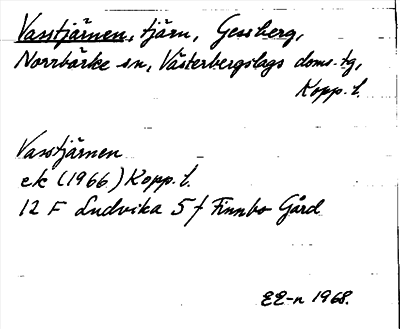 Vasstjärnen, tjärn, Gessberg,
Norrbärke sn, Västerbergslags doms. tg,
Kopp. l.
Vasstjärnen
ek (1966) Kopp. l.
12 F Ludvika 5 f Finnbo Gård
EE-n 1968.